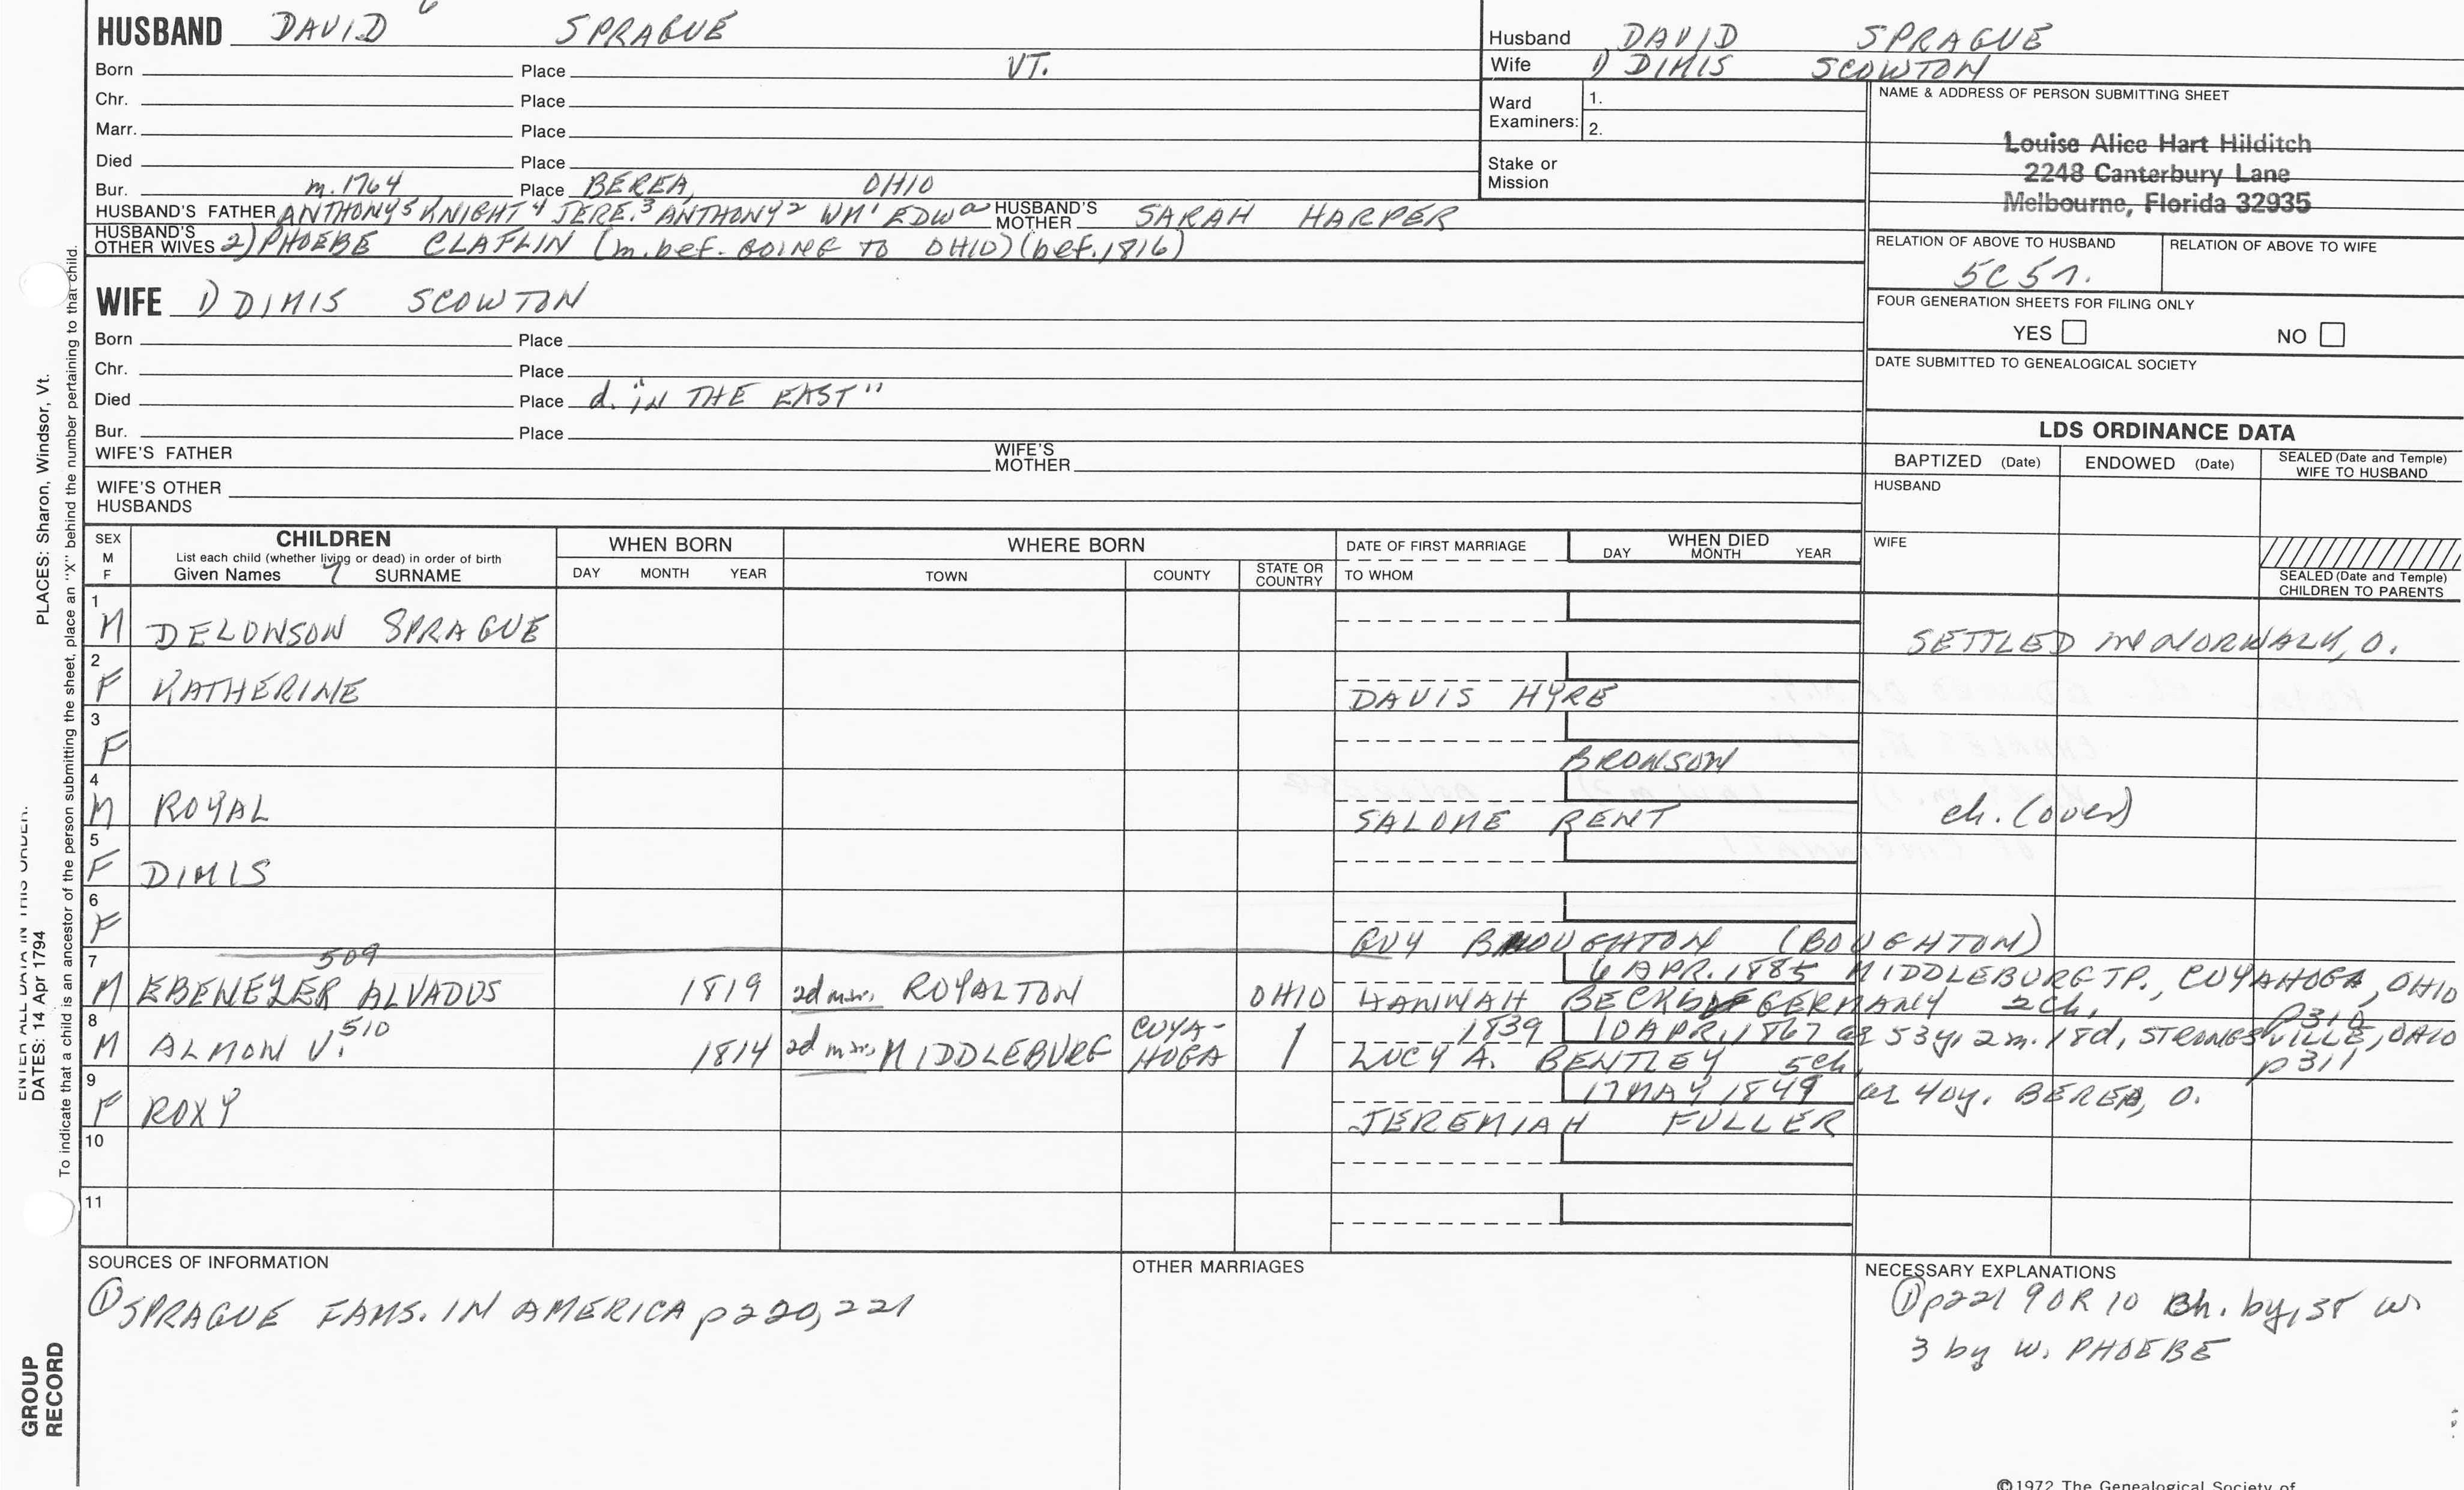 HUSBAND DAVID 6 SPRAGUE
Born Place VT.
Chr. Place
Marr. Place
Died Place
Bur. Place BEREA, OHIO
m. 1764
HUSBAND'S FATHER ANTHONY 5 KNIGHT 4 JERE. 3 ANTHONY 2 WM 1 EDW a HUSBAND'S MOTHER SARAH HARPER
HUSBAND'S OTHER WIVES 2) PHOEBE CLAFLIN (m. bef. GOING TO OHIO) (bef. 1816)
WIFE 1) DIMIS SCOWTON
Born Place
Chr. Place
Died Place d. "IN THE EAST"
Bur. Place
WIFE'S FATHER WIFE'S MOTHER
WIFE'S OTHER HUSBANDS
Husband DAVID SPRAGUE
Wife 1) DIMIS SCOWTON
Ward Examiners: 1. 2.
Stake or Mission
NAME & ADDRESS OF PERSON SUBMITTING SHEET
Louise Alice Hart Hilditch
2248 Canterbury Lane
Melbourne, Florida 32935
RELATION OF ABOVE TO HUSBAND RELATION OF ABOVE TO WIFE
5C 5r.
FOUR GENERATION SHEETS FOR FILING ONLY
YES NO
DATE SUBMITTED TO GENEALOGICAL SOCIETY
LDS ORDINANCE DATA
BAPTIZED (Date) ENDOWED (Date) SEALED (Date and Temple) WIFE TO HUSBAND
HUSBAND
WIFE
SEALED (Date and Temple) CHILDREN TO PARENTS
SEX M F
CHILDREN
List each child (whether living or dead) in order of birth
Given Names 7 SURNAME
WHEN BORN
DAY MONTH YEAR
WHERE BORN
TOWN COUNTY STATE OR COUNTRY
DATE OF FIRST MARRIAGE
TO WHOM
WHEN DIED
DAY MONTH YEAR
1 M DELONSON SPRAGUE SETTLED in NORWALK, O.
2 F KATHERINE DAVIS HYRE
3 F BRONSON
4 M ROYAL SALOME BENT ch. (over)
5 F DIMIS
6 F GUY BROUGHTON (BOUGHTON)
7 509 6 APR. 1885 MIDDLEBURG TP., CUYAHOGA, OHIO
M EBENEZER ALVADUS 1819 2d marr. ROYALTON OHIO HANNAH BECK of GERMANY 2ch. p310
8 510 1839 10 APR. 1867 ae 53y. 2m. 18d, STRONGSVILLE, OHIO
M ALMON V. 1814 2d marr. MIDDLEBURG CUYAHOGA LUCY A. BENTLEY 5ch. p311
9 17 MAY 1849 ae 40y. BEREA, O.
F ROXY JEREMIAH FULLER
10
11
SOURCES OF INFORMATION
① SPRAGUE FAMS. IN AMERICA p 220, 221
OTHER MARRIAGES
NECESSARY EXPLANATIONS
① p221 9 OR 10 ch. by 1st w.
3 by w. PHOEBE
©1972 The Genealogical Society of
PLACES: Sharon, Windsor, Vt.
To indicate that a child is an ancestor of the person submitting the sheet, place an "X" behind the number pertaining to that child.
ENTER ALL DATA IN THIS ORDER:
DATES: 14 Apr 1794
GROUP
RECORD